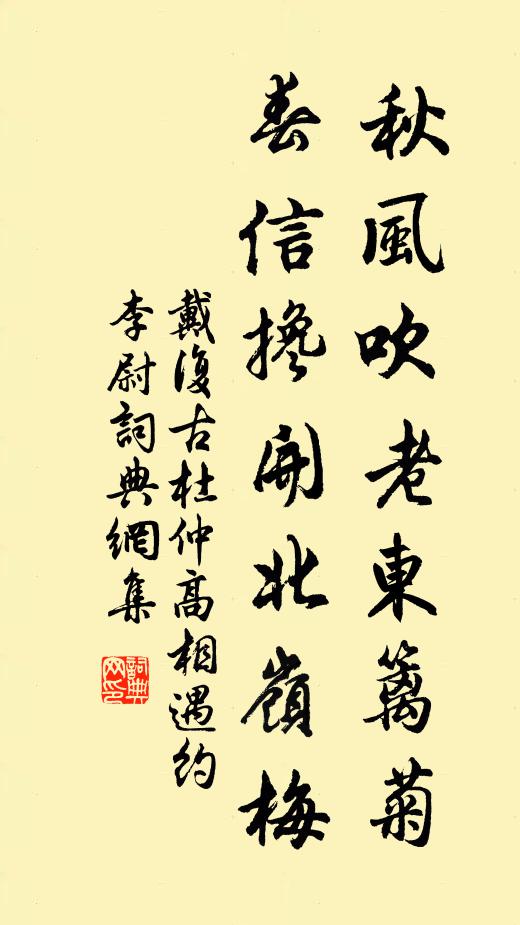 秋風吹老東籬菊
春信攙開北嶺梅
戴復古杜仲高相遇約
李尉詞典網集
詞典網印